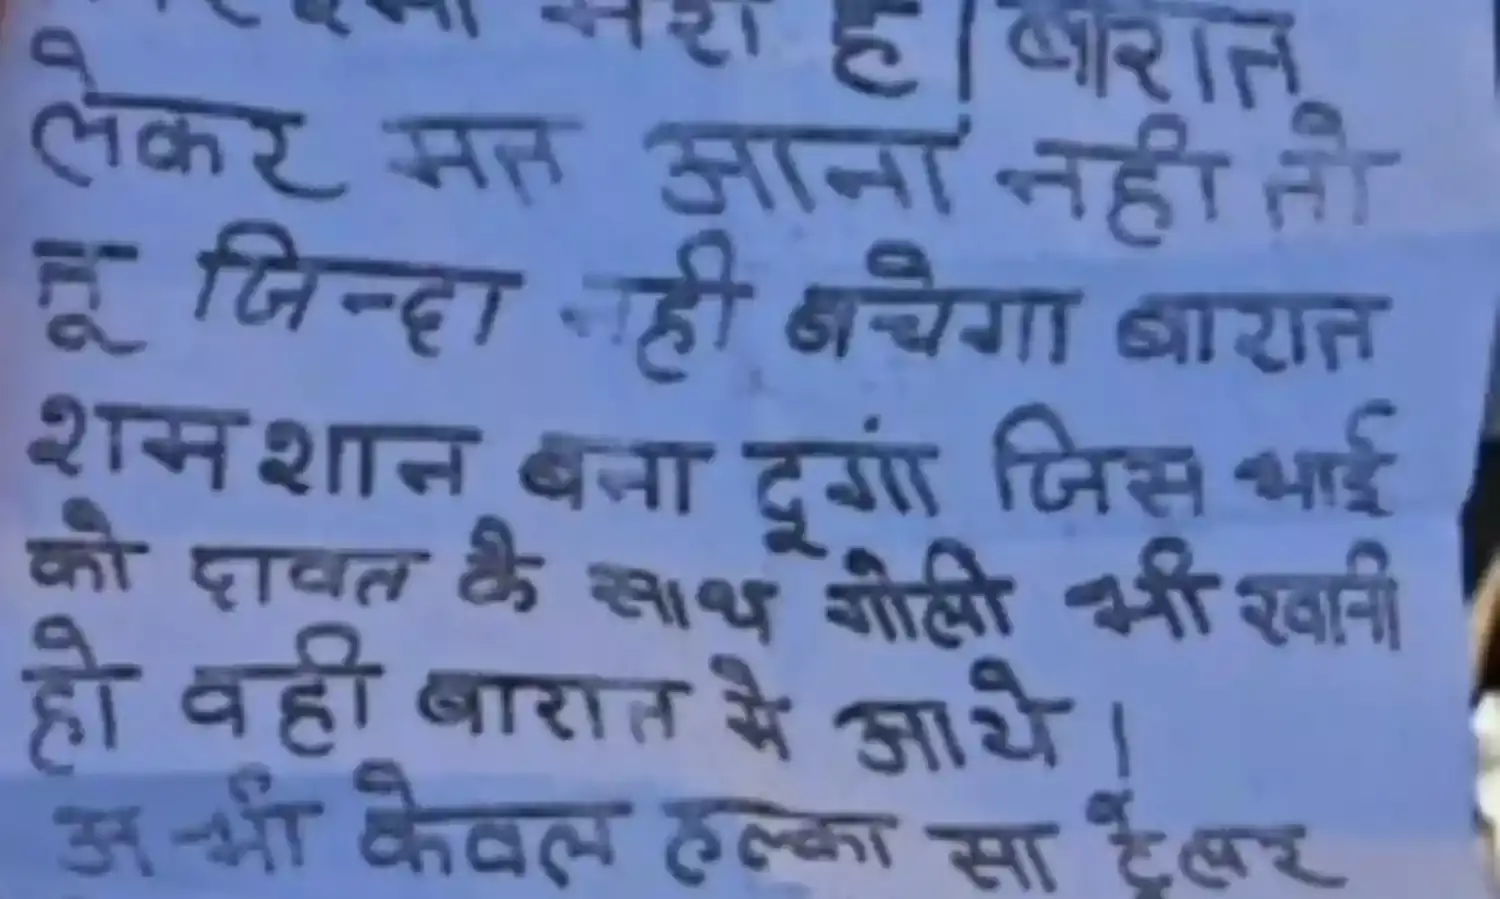 मेरी है। बारात
लेकर मत आना नही तो
तू जिन्दा नही बचेगा बारात
शमशान बना दूगां जिस भाई
को दावत के साथ गोली भी खानी
हो वही बारात मे आये।
अभी केवल हल्का सा ट्रेलर